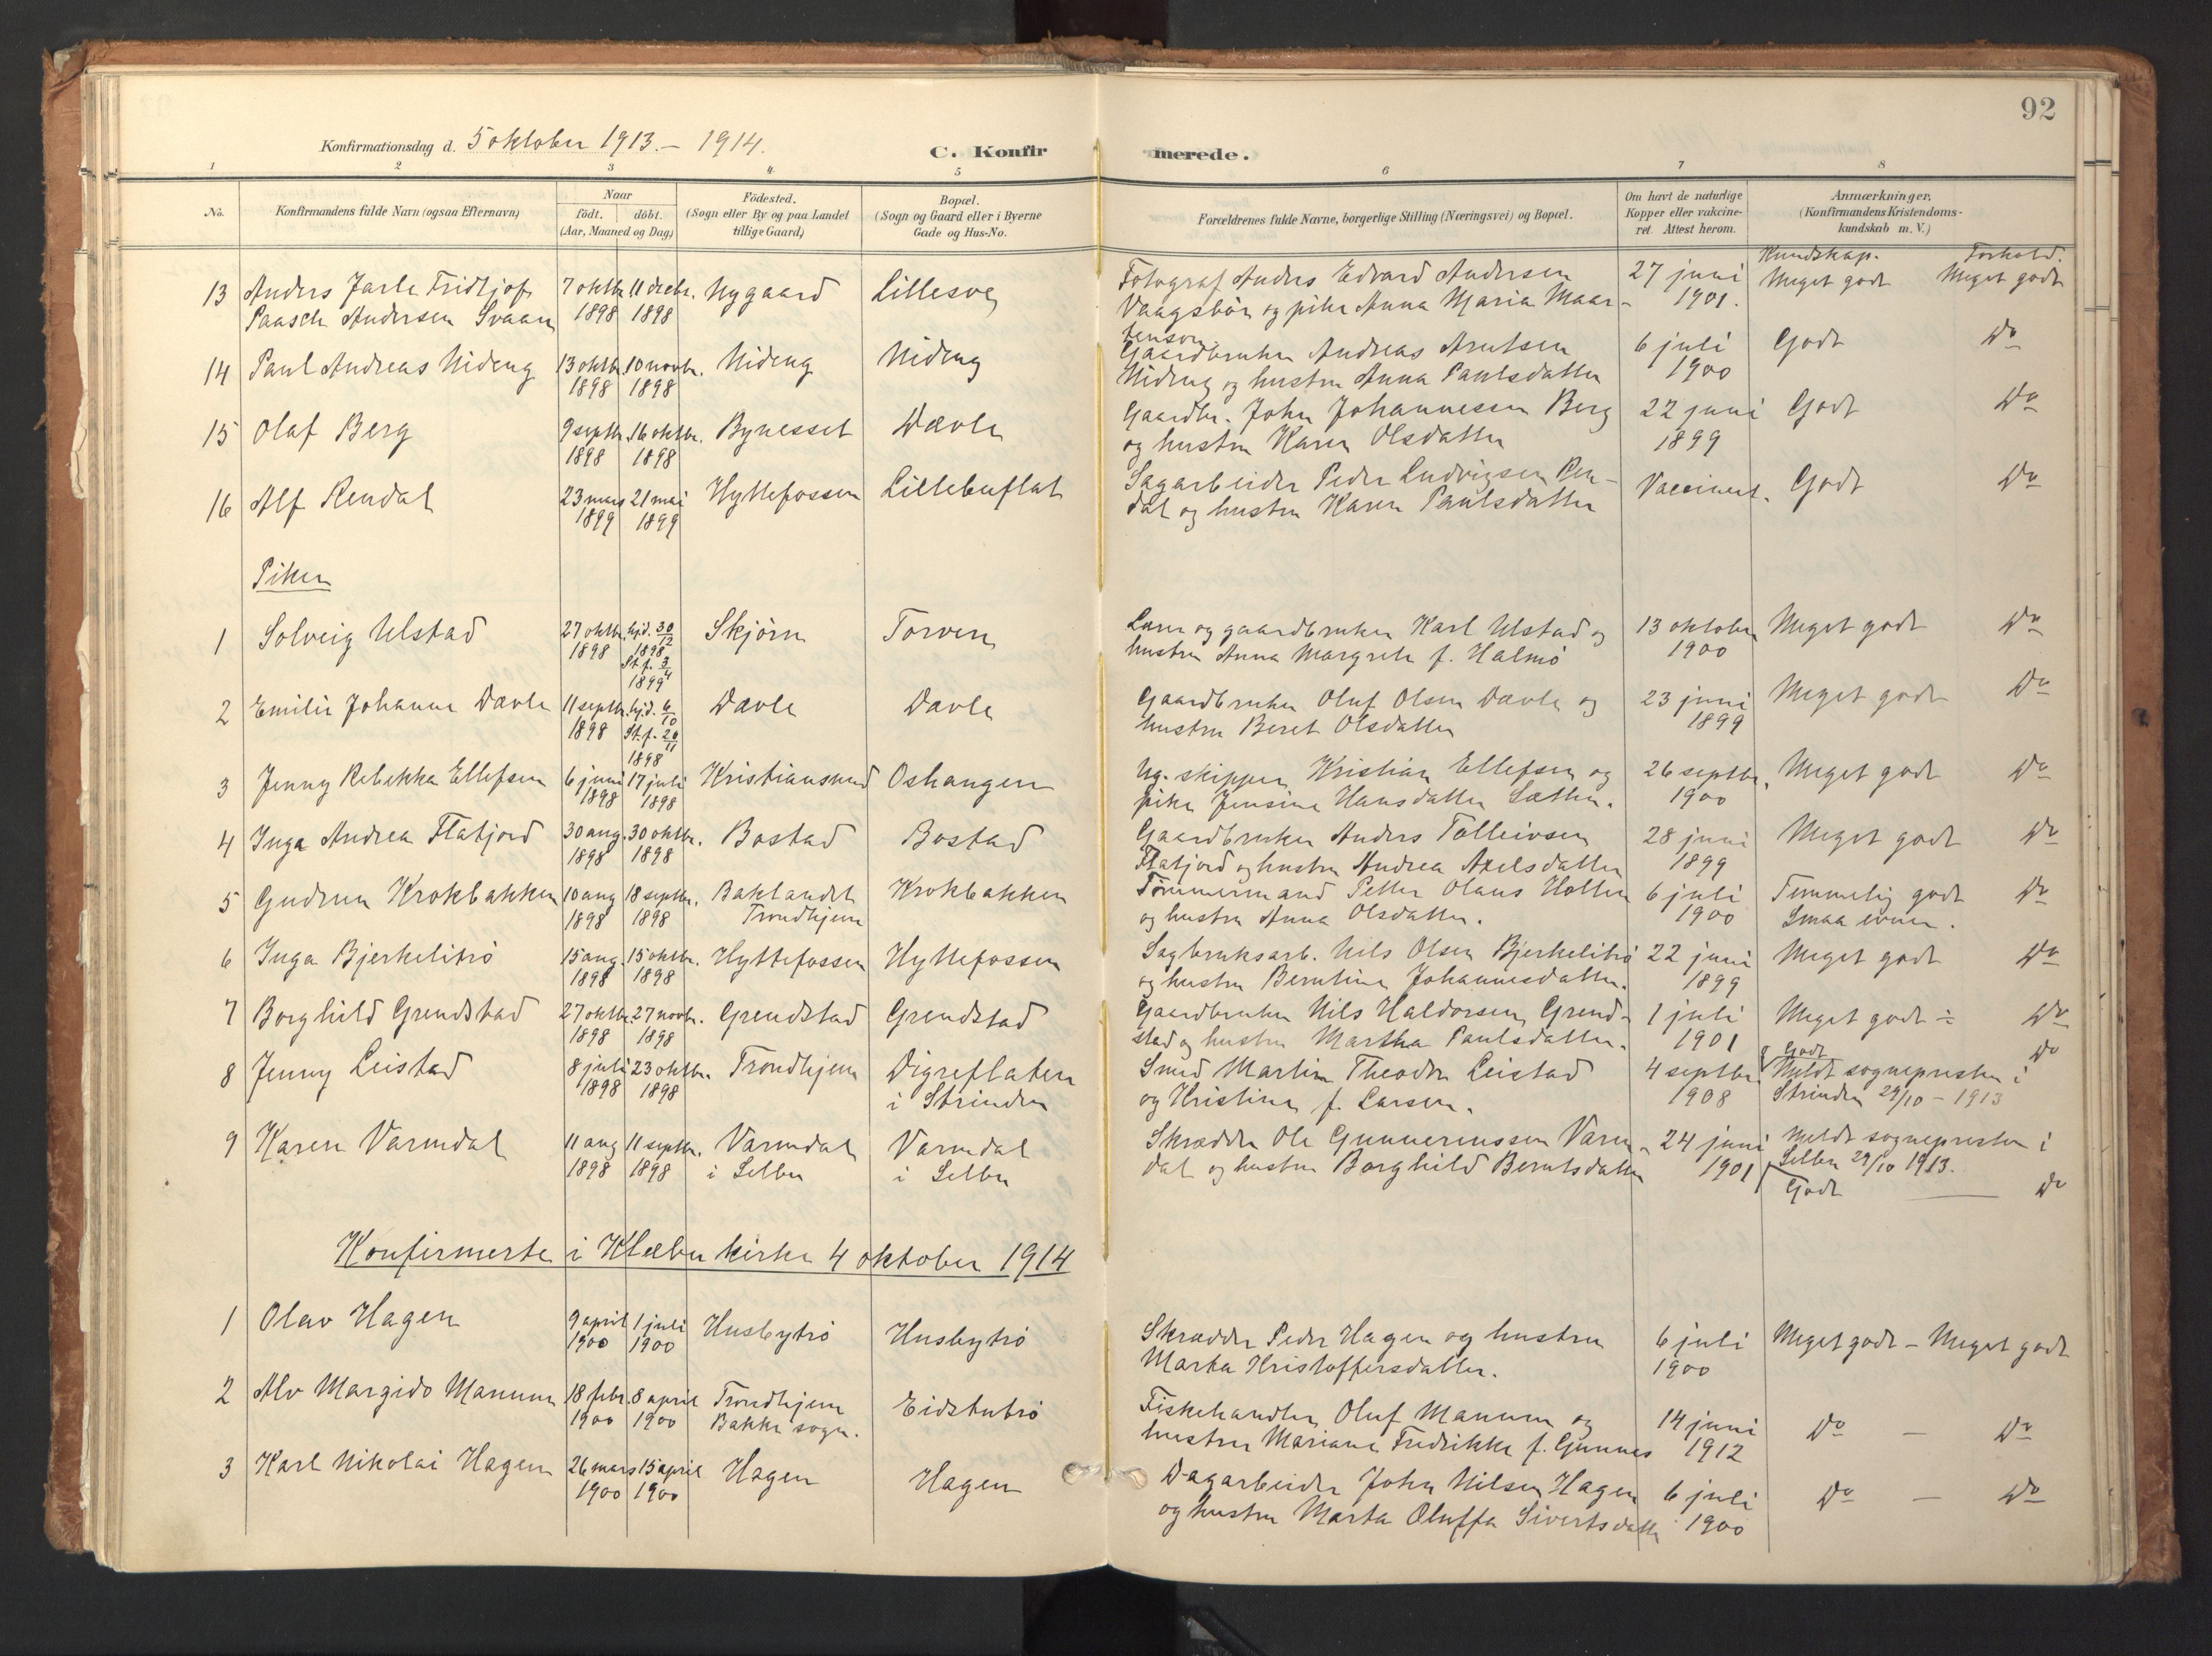 92
Konfirmationsdag d. 5 oktober 1913. – 1914.
C. Konfirmerede.
1 2 3 4 5 6 7 8
No.
Konfirmandens fulde Navn (ogsaa Efternavn)
Naar
födt. döbt.
(Aar, Maaned og Dag)
Födested.
(Sogn eller By og paa Landet
tillige Gaard)
Bopæl.
(Sogn og Gaard eller i Byerne
Gade og Hus-No.
Forældrenes fulde Navne, borgerlige Stilling (Næringsvei) og Bopæl.
Om havt de naturlige
Kopper eller vakcine-
ret. Attest herom.
Anmærkninger,
(Konfirmandens Kristendoms-
kundskab m. V.)
Kundskap. Forhold.
13 Anders Jarle Fridtjof 7 oktbr. 11 decbr. Nygaard Lillesve Fotograf Anders Edvard Andersen 27 juni Meget godt Meget godt
Paasch Andersen Svaan 1898 1898 Vaagsbör og pike Anna Maria Maar- 1901.
tenson.
14 Paul Andreas Nideng 13 oktbr. 10 novbr. Nideng Nideng Gaardbruker Andreas Arntsen 6 juli Godt Do
1898 1898 Nideng og hustru Anna Paulsdatter 1900
15 Olaf Berg 9 septbr. 16 oktbr. Bynesset Dævle Gaardbr. John Johannessen Berg 22 juni Godt Do
1898 1898 og hustru Karen Olsdatter 1899
16 Alf Rendal 23 mars 21 mai Hyttefossen Lillebuflat Sagarbeider Peder Ludvigsen Ren- Vaccinert. Godt Do
1899 1899 dal og hustru Karen Paulsdatter
Piker
1 Solveig Ulstad 27 oktbr. hjd. 30/12 Skjörn Torven Lærer og gaardbruker Karl Ulstad og 13 oktober Meget godt Do
1898 1898 hustru Anna Margrete f. Halmö 1900
St. f. 3/4
1899
2 Emilie Johanne Dævle 11 septbr. hjd. 6/10 Dævle Dævle Gaardbruker Oluf Olsen Dævle og 23 juni Meget godt Do
1898 St. f. 20/11 hustru Beret Olsdatter 1899
1898
3 Jenny Rebekka Ellefsen 6 juni 17 juli Kristiansund Oshangen Ug. skipper Kristian Ellefsen og 26 septbr. Meget godt Do
1898 1898 pike Jensine Hansdatter Sætter. 1900
4 Inga Andrea Flatjord 30 aug. 30 oktbr. Bostad Bostad Gaardbruker Anders Tolleivsen 28 juni Meget godt Do
1898 1898 Flatjord og hustru Andrea Axelsdatter 1899
5 Gudrun Krokbakken 10 aug 18 septbr. Baklandet Krokbakken Tømmermand Petter Olaus Holten 6 juli Temmelig godt Do
1898 1898 Trondhjem og hustru Anna Olsdatter. 1900 Smaa evner.
6 Inga Bjerkelitrö 15 aug. 15 oktbr. Hyttefossen Hyttefossen Sagbruksarb. Nils Olsen Bjerkelitrö 22 juni Meget godt Do
1898 1898 og hustru Berntine Johannesdatter. 1899
7 Borghild Grendstad 27 oktbr. 27 novbr. Grendstad Grendstad Gaardbruker Nils Haldorsen Grend- 1 juli Meget godt ÷ Do
1898 1898 stad og hustru Martha Paulsdatter. 1901
8 Jenny Leistad 8 juli 23 oktbr. Trondhjem Digreflaten Smed Martin Theodor Leistad 4 septbr. Godt Do
1898 1898 i Strinden og Kristine f. Larsen. 1908 Meldt sognepresten i
Strinden 29/10 – 1913
9 Karen Varmdal 11 aug 11 septbr. Varmdal Varmdal Skrædder Ole Gunneriussen Varm- 24 juni Meldt sognepresten i
1898 1898 i Selbu i Selbu dal og hustru Borghild Berntsdatter 1901 Selbu 29/10 1913.
Godt — Do
Konfirmerte i Klæbu kirke 4 oktober 1914
1 Olav Hagen 9 april 1 juli Husbytrö Husbytrö Skrædder Peder Hagen og hustru 6 juli Meget godt – Meget godt
1900 1900 Marta Kristoffersdatter. 1900
2 Alv Margido Manum 18 febr. 8 april Trondhjem Eidstutrö Fiskehandler Oluf Manum og 14 juni Do – Do
1900 1900 Bakke sogn. hustru Mariane Fredrikke f. Gunnes 1912
3 Karl Nikolai Hagen 26 mars 15 april Hagen Hagen Dagarbeider John Nilsen Hagen 6 juli Do – Do
1900 1900 og hustru Marta Oluffa Sivertsdatter 1900